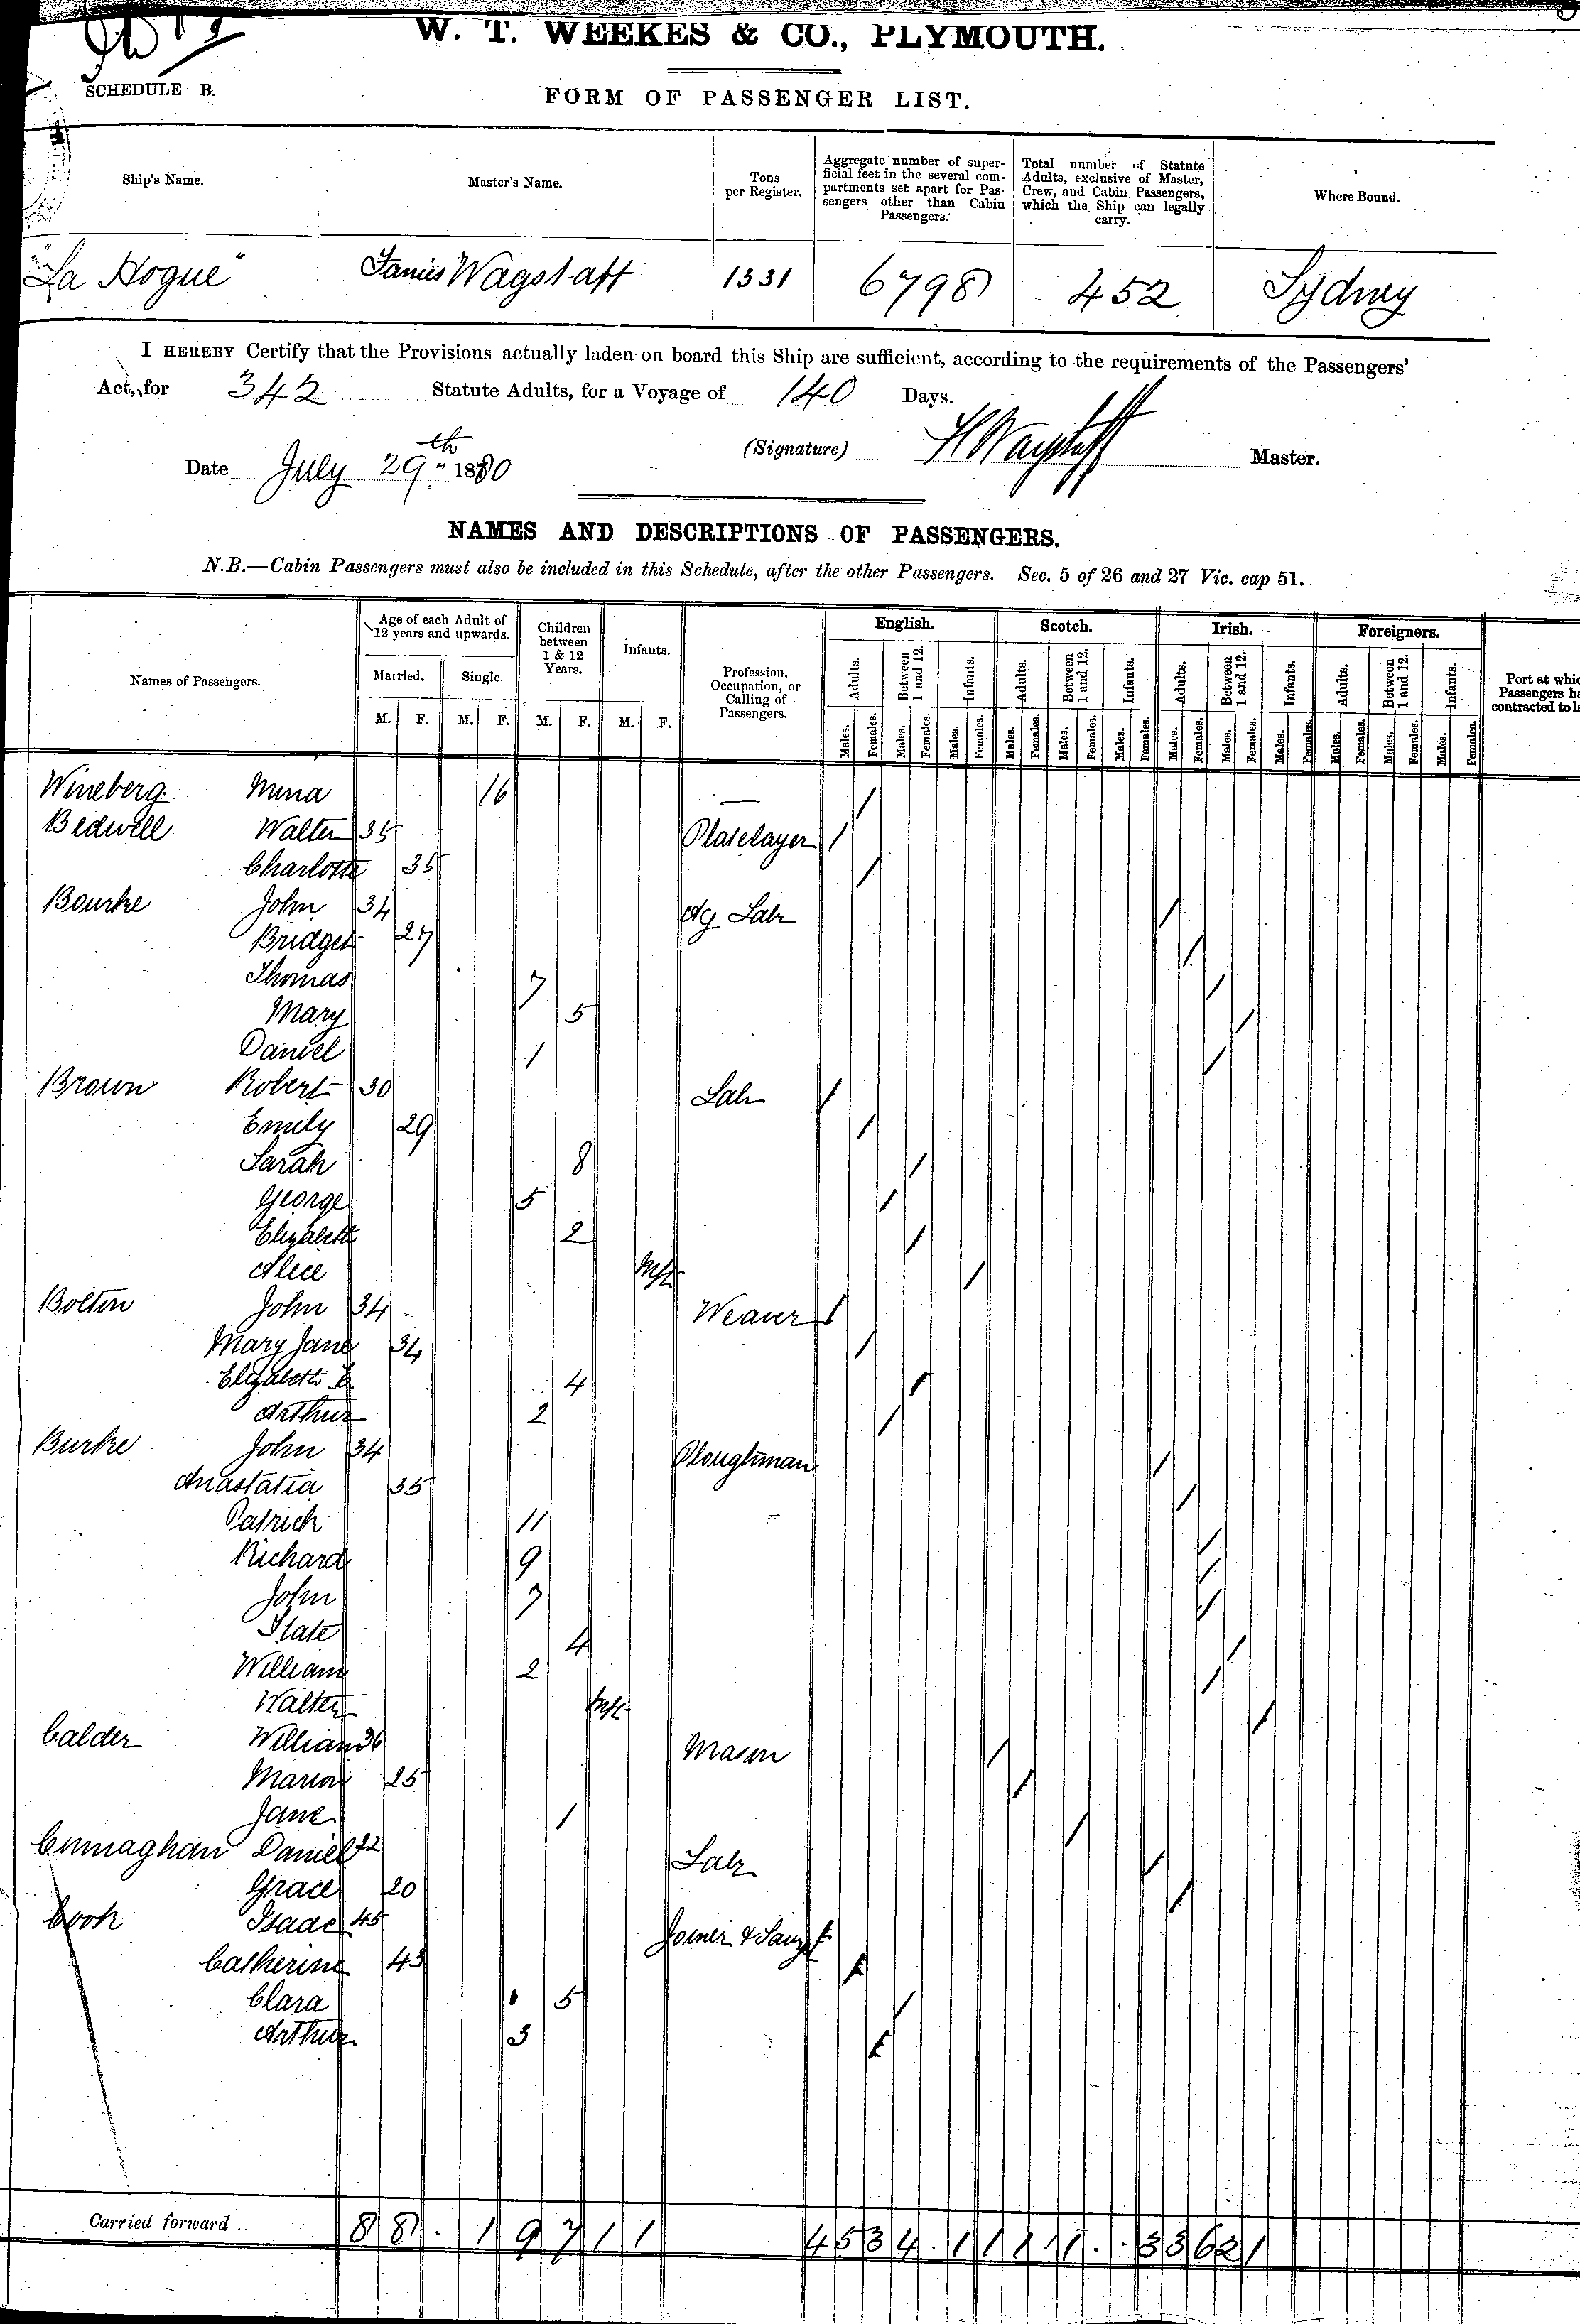 W. T. WEEKES & CO., PLYMOUTH.
SCHEDULE B.
FORM OF PASSENGER LIST.
Ship's Name. Master's Name. Tons per Register. Aggregate number of superficial feet in the several compartments set apart for Passengers other than Cabin Passengers. Total number of Statute Adults, exclusive of Master, Crew, and Cabin Passengers, which the Ship can legally carry. Where Bound.
"La Hogue" James Wagstaff 1331 6798 452 Sydney
I HEREBY Certify that the Provisions actually laden on board this Ship are sufficient, according to the requirements of the Passengers'
Act, for 342 Statute Adults, for a Voyage of 140 Days.
(Signature) Wagstaff Master.
Date July 29th 1880
NAMES AND DESCRIPTIONS OF PASSENGERS.
N.B.—Cabin Passengers must also be included in this Schedule, after the other Passengers. Sec. 5 of 26 and 27 Vic. cap 51.
Names of Passengers. Age of each Adult of 12 years and upwards. Children between 1 & 12 Years. Infants. Profession, Occupation, or Calling of Passengers. English. Scotch. Irish. Foreigners. Port at which Passengers
Married. Single. Adults. Between 1 and 12. Infants. Adults. Between 1 and 12. Infants. Adults. Between 1 and 12. Infants. Adults. Between 1 and 12. Infants. contracted to
M. F. M. F. M. F. M. F. Males. Females. Males. Females. Males. Females. Males. Females. Males. Females. Males. Females. Males. Females. Males. Females. Males. Females. Males. Females. Males. Females. Males. Females.
Wineberg Mina 16 — /
Bedwell Walter 35 Platelayer /
Charlotte 35 /
Bourke John 34 Ag Lab /
Bridget 27 /
Thomas 7 /
Mary 5 /
Daniel 1 /
Brown Robert 30 Lab /
Emily 29 /
Sarah 8 /
George 5 /
Elizabeth 2 /
Alice Inf /
Bolton John 34 Weaver /
Mary Jane 34 /
Elizabeth 4 /
Arthur 2 /
Burke John 34 Ploughman /
Anastatia 35 /
Patrick 11 /
Richard 9 /
John 7 /
Kate 4 /
William 2 /
Walter Inf /
Calder William 36 Mason /
Marion 25 /
Jane 1 /
Cunnaghan Daniel 22 Lab /
Grace 20 /
Cook Isaac 45 Joiner & /
Catherine 43 /
Clara 5 /
Arthur 3 /
Carried forward 8 8 . 1 9 7 1 1 4 5 3 4 . 1 1 1 . 1 . . 3 3 6 2 1